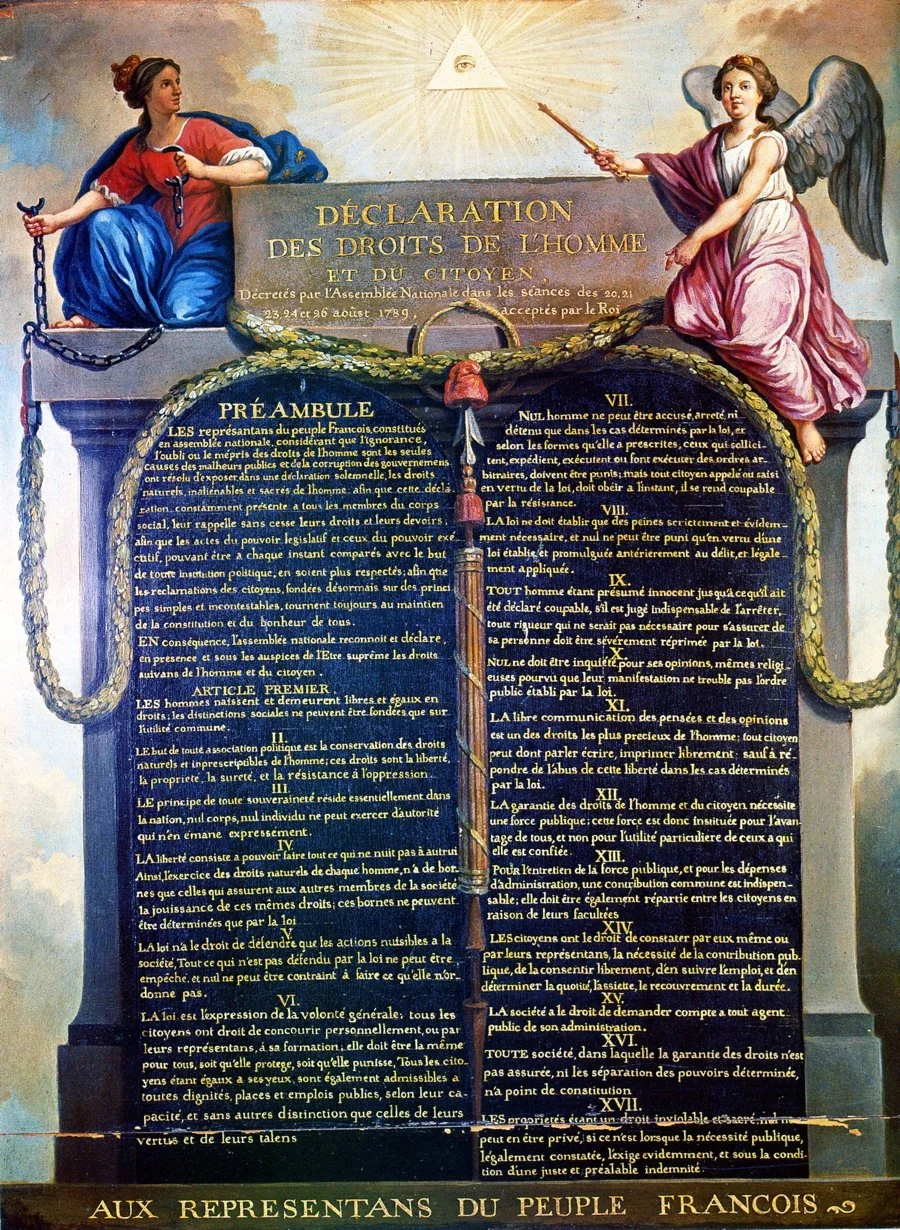 DÉCLARATION
DES DROITS DE L'HOMME
ET DU CITOYEN.
Décretés par l'Assemblée Nationale dans les séances des 20.21
23.24 et 26 août 1789, acceptés par le Roi
PRÉAMBULE
LES représentans du peuple François, constitués
en assemblée nationale, considérant que l'ignorance,
l'oubli ou le mépris des droits de l'homme sont les seules
causes des malheurs publics et de la corruption des gouvernemens
ont résolu d'exposer, dans une déclaration solemnelle, les droits
naturels, inaliénables et sacrés de l'homme: afin que cette décla-
ration, constamment présente a tous les membres du corps
social, leur rappelle sans cesse leurs droits et leurs devoirs;
afin que les actes du pouvoir legislatif et ceux du pouvoir exé-
cutif, pouvant être a chaque instant comparés avec le but
de toute institution politique, en soient plus respectés; afin que
les reclamations des citoyens, fondées désormais sur des princi
pes simples et incontestables, tournent toujours au maintien
de la constitution et du bonheur de tous.
EN conséquence, l'assemblée nationale reconnoit et déclare,
en presence et sous les auspices de l'Etre suprême les droits
suivans de l'homme et du citoyen.
ARTICLE PREMIER.
LES hommes naissent et demeurent libres et égaux en
droits; les distinctions sociales ne peuvent être fondées que sur
l'utilité commune.
II.
LE but de toute association politique est la conservation des droits
naturels et inprescriptibles de l'homme; ces droits sont la liberté,
la propriété, la sureté, et la résistance à l'oppression.
III.
LE principe de toute souveraineté réside essentiellement dans
la nation, nul corps, nul individu ne peut exercer d'autorité
qui n'en émane expressément.
IV.
LA liberté consiste a pouvoir faire tout ce qui ne nuit pas à autrui
Ainsi, l'exercice des droits naturels de chaque homme, n'a de bor-
nes que celles qui assurent aux autres membres de la société
la jouissance de ces mêmes droits; ces bornes ne peuvent
être déterminées que par la loi
V.
LA loi n'a le droit de défendre que les actions nuisibles a la
société. Tout ce qui n'est pas défendu par la loi ne peut être
empêché, et nul ne peut être contraint à faire ce qu'elle n'or-
donne pas.
VI.
LA loi est l'expression de la volonté générale; tous les
citoyens ont droit de concourir personnellement, ou par
leurs représentans, à sa formation; elle doit être la même
pour tous, soit qu'elle protege, soit qu'elle punisse, Tous les cito-
yens étant égaux a ses yeux, sont également admissibles a
toutes dignités, places et emplois publics, selon leur ca-
pacité, et sans autres distinction que celles de leurs
vertus et de leurs talens
VII.
NUL homme ne peut être accusé, arreté, ni
détenu que dans les cas déterminés par la loi, et
selon les formes qu'elle a prescrites, ceux qui sollici-
tent, expédient, exécutent ou font exécuter des ordres ar-
bitraires, doivent être punis; mais tout citoyen appelé ou saisi
en vertu de la loi, doit obéir a l'instant, il se rend coupable
par la résistance.
VIII.
LA loi ne doit établir que des peines strictement et évidem-
ment nécessaire, et nul ne peut être puni qu'en vertu d'une
loi établie et promulguée antérierement au délit, et légale-
ment appliquée.
IX.
TOUT homme étant présumé innocent jusqu'a ce qu'il ait
été déclaré coupable, s'il est jugé indispensable de l'arrêter,
toute rigueur qui ne serait pas nécessaire pour s'assurer de
sa personne doit être sévèrement réprimée par la loi.
X.
NUL ne doit être inquiété pour ses opinions, mêmes religi-
euses pourvu que leur manifestation ne trouble pas l'ordre
public établi par la loi.
XI.
LA libre communication des pensées et des opinions
est un des droits les plus precieux de l'homme; tout citoyen
peut dont parler écrire, imprimer librement: sauf à ré-
pondre de l'abus de cette liberté dans les cas déterminés
par la loi.
XII.
LA garantie des droits de l'homme et du citoyen nécessite
une force publique; cette force est donc instituée pour l'avan-
tage de tous, et non pour l'utilité particuliere de ceux a qui
elle est confiée.
XIII.
POUR l'entretien de la force publique, et pour les dépenses
d'administration, une contribution commune est indispen-
sable; elle doit être également répartie entre les citoyens en
raison de leurs facultées
XIV.
LES citoyens ont le droit de constater par eux même ou
par leurs représentans, la nécessité de la contribution pub-
lique, de la consentir librement, d'en suivre l'emploi, et d'en
déterminer la quotité, l'assiette, le recouvrement et la durée.
XV.
LA société a le droit de demander compte a tout agent
public de son administration.
XVI.
TOUTE société, dans laquelle la garantie des droits n'est
pas assurée, ni les séparation des pouvoirs déterminée,
n'a point de constitution
XVII.
LES propriétés étant un droit inviolable et sacré, nul ne
peut en être privé, si ce n'est lorsque la nécessité publique,
légalement constatée, l'exige evidemment, et sous la condi-
tion d'une juste et préalable indemnité.
AUX REPRESENTANS DU PEUPLE FRANCOIS